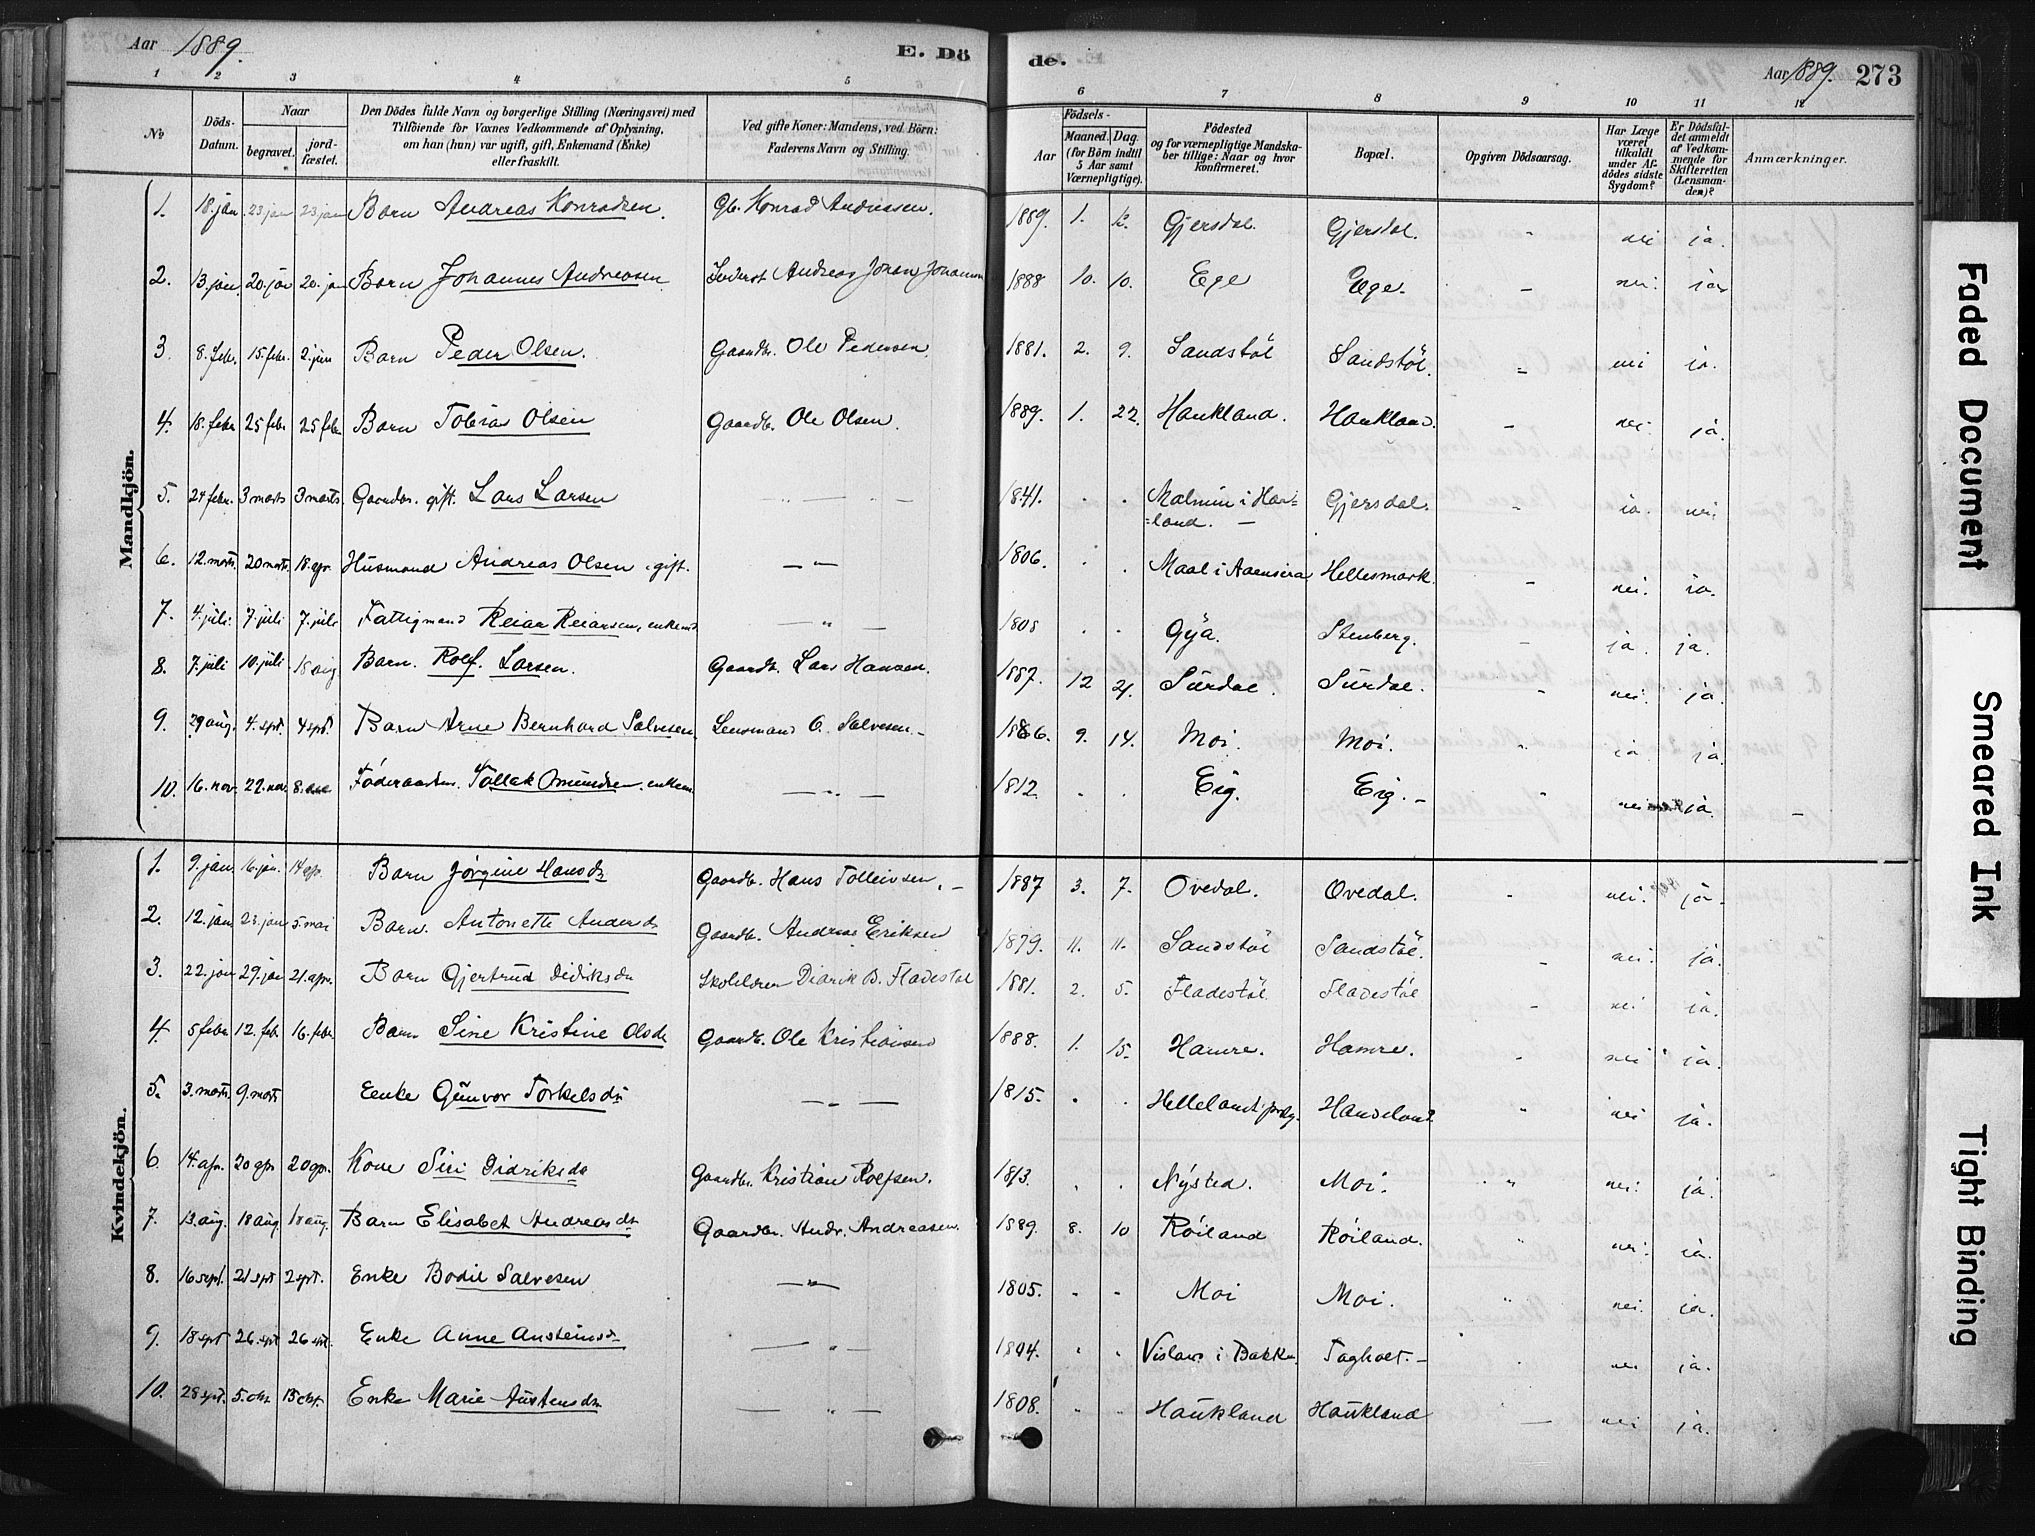 Aar 1889. E. Dö de. Aar 1889. 273
1 2 3 4 5 6 7 8 9 10 11 12
No
Döds-Datum.
Naar
begravet.
jord-fæstet.
Den Dödes fulde Navn og borgerlige Stilling (Næringsvei) med
Tilföiende for Voxnes Vedkommende af Oplysning,
om han (hun) var ugift, gift, Enkemand (Enke)
eller fraskilt.
Ved gifte Koner: Mandens, ved Börn:
Faderens Navn og Stilling.
Födsels-
Aar
Maaned. Dag.
(for Börn indtil
5 Aar samt
Værnepligtige).
Födested
og for værnepligtige Mandska-
ber tillige: Naar og hvor
konfirmeret.
Bopæl.
Opgiven Dödsaarsag.
Har Læge
været
tilkaldt
under Af-
dödes sidste
Sygdom?
Er Dödsfal-
det anmeldt
af Vedkom-
mende for
Skifteretten
(Lensman-
den)?
Anmærkninger.
Mandkjön.
1. 18. jan 23 jan 23 jan Barn Andreas Konradsen. Gb. Konrad Andreassen. 1889. 1. 12. Gjersdal. Gjersdal. " nei ja.
2. 13 jan. 20. jan 20. jan Barn Johannes Andreasen Andreas Johan Johannesen 1888 10. 10. Ege Ege. – nei. ja
3. 8. febr. 15. febr. 2. juni Barn Peder Olsen. Gaardb. Ole Pedersen. 1881. 2. 9. Sandstöl Sandstöl. " nei ja.
4. 18. febr 25 febr 25 febr. Barn Tobias Olsen Gaardb. Ole Olsen. 1889. 1. 22. Haukland. Haukland. – nei. ja.
5. 24 febr. 3 marts 3 marts. Gaardbr. gift. Lars Larsen 1841. Malmin i Hæ=
=land. – Gjersdal. " ja. nei.
6. 12. marts. 20 marts. 18. apr. Husmand Andreas Olsen, gift. – " – 1806. Maal i Aaensira Hellesmark. – nei. ja.
7. 4. juli. 7. juli 7. juli Fattigmand Reiar Reiarsen, enkemd – " – 1808 Gya. Stenberg. – ja. ja.
8. 7. juli 10. juli 18 aug Barn. Rolf. Larsen. Gaardb. Lars Hansen. 1887. 12 21. Surdal. Surdal. " nei. ja
9. 29 aug. 4. spt. 4 spt. Barn Arne Bernhard Salvesen. Lensmand O. Salvesen. – 1886. 9. 14. Moi. Moi. " ja ja.
10. 16. nov. 22. nov. 8. Föderaadsm. Tollak Omundsen. enkem. – " – 1812. Eig. Eig. – " nei ja. –
Kvindekjön.
1. 9. jan. 16. jan. 14 apr. Barn Jörgine Hansdr Gaardb. Hans Tolleivsen. – 1887 3. 7. Ovedal. Ovedal. " nei. ja.
2. 12. jan 23. jan 5. mai Barn. Antonette Andersdr Gaardb. Andreas Eriksen 1879. 11. 11. Sandstöl Sandstöl. – nei. ja.
3. 22. jan 29. jan 21. apr. Barn Gjertrud Didriksdr Skolelærer Didrik B. Fladestöl 1881. 2. 5. Fladestöl Fladestöl – nei ja.
4. 5 febr. 12. feb. 16. febr Barn Sine Kristine Olsdr Gaardb. Ole Kristiansen 1888. 1. 15. Hamre. Hamre. " nei ja.
5. 3. marts 9. marts Eenke Gunvor Torkelsdr – " – 1815. Hellelands prstg. Haaseland. " nei ja.
6. 14. apr. 20 apr 20 apr. Kone Siri Didriksdr Gaardbr. Kristian Rolfsen. 1813. Nysted. Moi. " nei. ja
7. 13. aug. 18 aug 18 aug. Barn Elisabet Andreasdr Gaardbr. Andr. Andreasen. 1889. 8. 10 Röiland Röiland. " nei. ja.
8. 16 sept. 21 spt 2 spt. Enke Bodil Salvesen – " – 1805. Moi Moi. " nei. ja.
9. 18 spt 26. spt 26 spt. Enke Anne Austeinsdr – " – 1804. Vislan i Bakke. Tagholt. – nei ja.
10. 28 spt. 5. okt. 13 okt. Enke Marie Austensdr – " – 1808. Haukland Haukland – nei ja.
Faded Document
Smeared Ink
Tight Binding